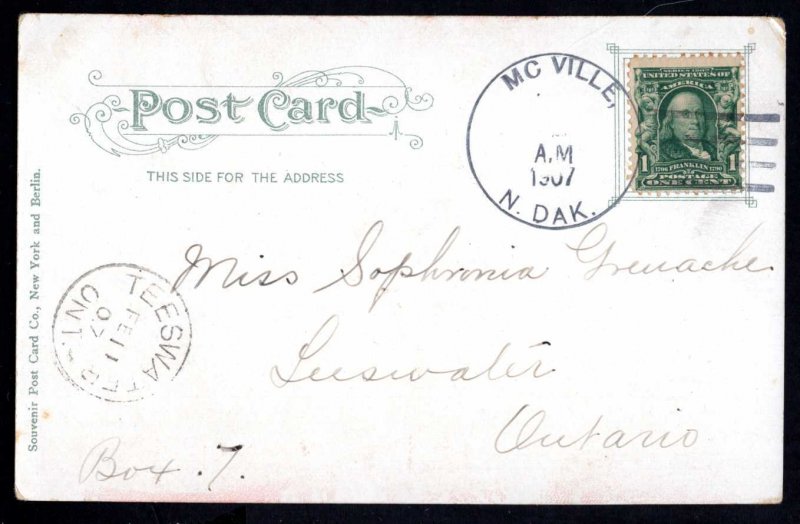 Post Card
THIS SIDE FOR THE ADDRESS
MC VILLE,
A.M
1907
N. DAK.
SERIES 1902
UNITED STATES OF
AMERICA
1 1
1706 FRANKLIN 1790
POSTAGE
ONE CENT
Miss Sophronia Grenache
Teeswater
Ontario
Box. 7.
TEESWATER
FE 11
07
ONT
Souvenir Post Card Co., New York and Berlin.